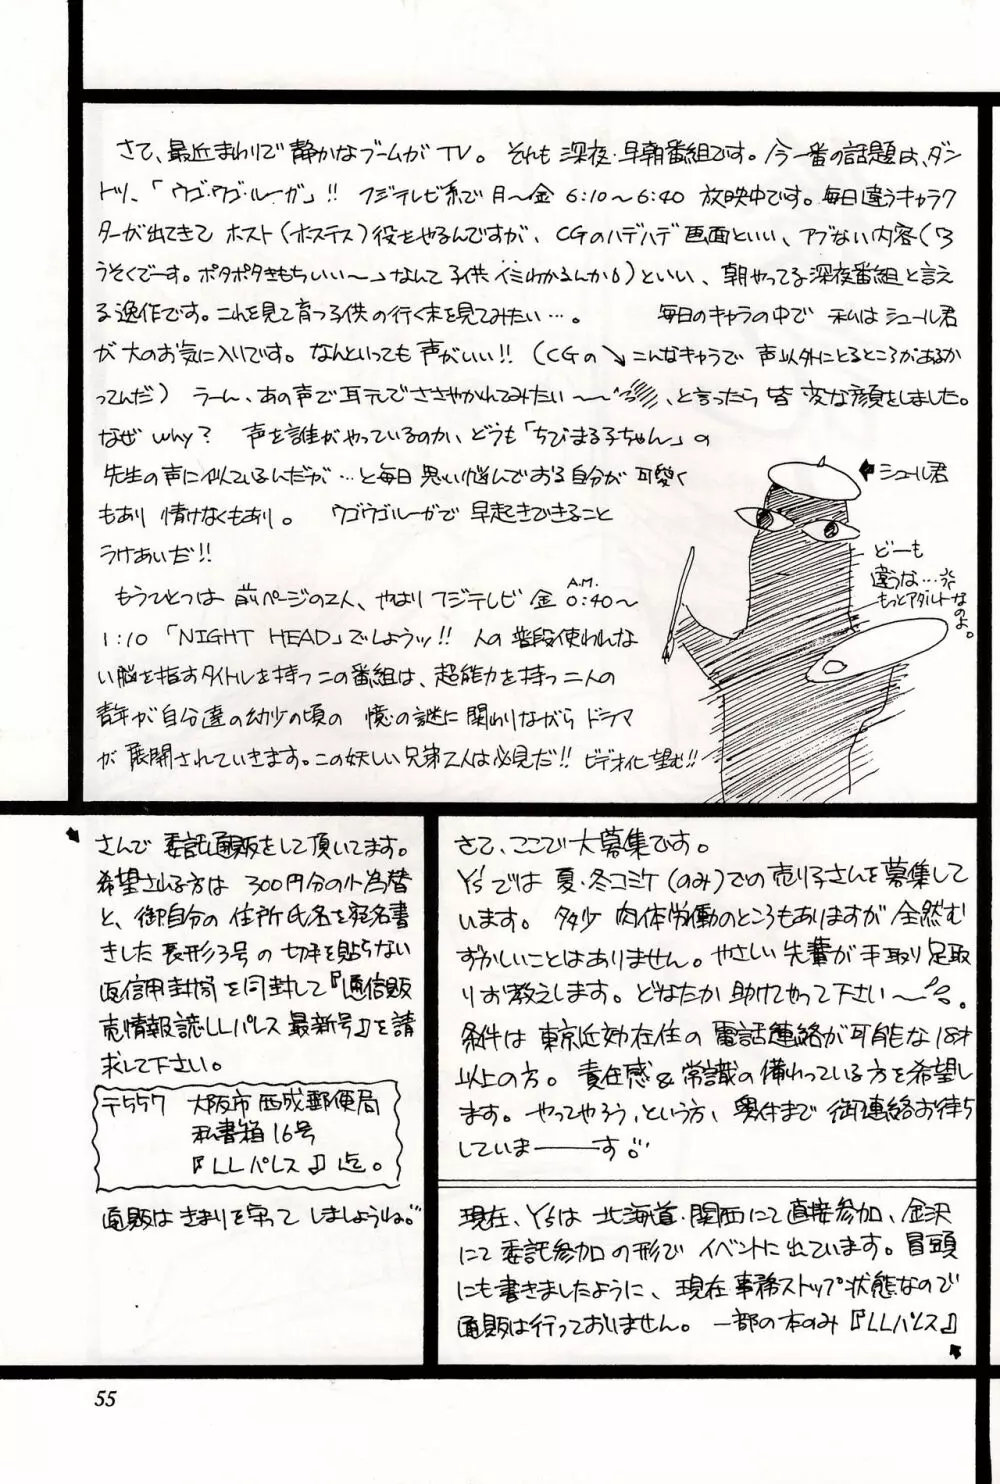 さて、最近まわりで静かなブームがTV。それも深夜・早朝番組です。今一番の話題は、ダン
トツ、「ウゴ・ウゴ・ルーガ」!! フジテレビ系で月〜金 6:10〜6:40 放映中です。毎日違うキャラク
ターが出てきて ホスト(ホステス)役をやるんですが、CGのハデハデ画面といい、アブない内容(「ろ
うそくでーす。ポタポタきもちいい〜」なんて子供イミわかるんか)といい、朝やってる深夜番組と言え
る逸作です。これを見て育つ子供の行く末を見てみたい…。 毎日のキャラの中で 私はシュール君
が大のお気に入りです。なんといっても声がいい!! (CGの↘こんなキャラで 声以外にとるところがあるか
ってんだ) うーん、あの声で耳元でささやかれてみたい〜〜、と言ったら皆変な顔をしました。
なぜ why? 声を誰がやっているのか、どうも「ちびまる子ちゃん」の
先生の声に似ているんだが…と毎日思い悩んでおる自分が可愛く
もあり 情けなくもあり。 ウゴウゴルーガで早起きできること
うけあいだ!!
もうひとつは前ページの2人、やはりフジテレビ 金 A.M. 0:40〜
1:10 「NIGHT HEAD」でしょうッ!! 人の普段使われんな
い脳を指すタイトルを持つこの番組は、超能力を持つ二人の
青年が自分達の幼少の頃の 憶の謎に関わりながらドラマ
が展開されていきます。この妖しい兄弟2人は必見だ!! ビデオ化望む!!
シュール君
どーも
違うな…
もっとアダルトな
のよ。
さんで 委託通販をして頂いてます。
希望される方は 300円分の小為替
と、御自分の 住所氏名を宛名書
きした 長形3号の 切手を貼らない
返信用封筒を同封して『通信販
売情報誌LLパレス 最新号』を請
求して下さい。
〒557 大阪市西成郵便局
私書箱16号
『LLパレス』迄。
通販はきまりを守って しましょうね。
さて、ここで大募集です。
Y'sでは 夏・冬コミケ(のみ)での売り子さんを募集して
います。 多少 肉体労働のところもありますが 全然む
ずかしいことはありません。やさしい先輩が手取り足取
りお教えします。どなたか助けてやって下さい〜。
条件は 東京近効在住の 電話連絡が可能な18才
以上の方。 責任感&常識の備わっている方を希望し
ます。 やってやろう、という方、奥付まで 御連絡お待ち
していま——す。
現在、Y'sは 北海道・関西にて直接参加、金沢
にて委託参加の形で イベントに出ています。冒頭
にも書きましたように、現在事務ストップ状態なので
通販は行っておりません。 一部の本のみ『LLパレス』
55